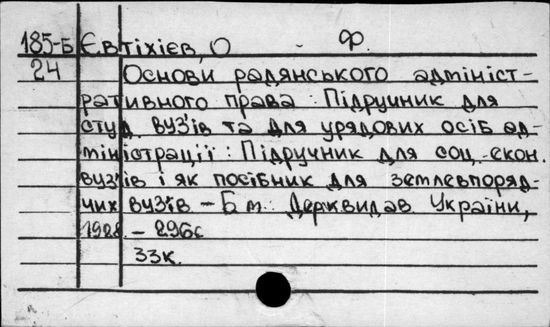 185-Б Євтіхієв, О. Ф.
24 Основи радянського адмініст-
ративного права: Підручник для
студ. вузів та для урядових осіб ад-
міністрації: Підручник для соц.-екон.
вузів і як посібник для землевпоряд-
чих вузів. - Б.м.: Держвидав України,
1928. - 296с
33к.